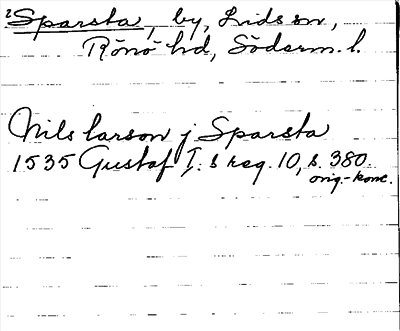 2 Sparsta, by, Lids sn,
Rönö hd, Söderm. l.
Nils larson j Sparsta
1535 Gustaf I:s reg. 10, s. 380.
orig.-konc.